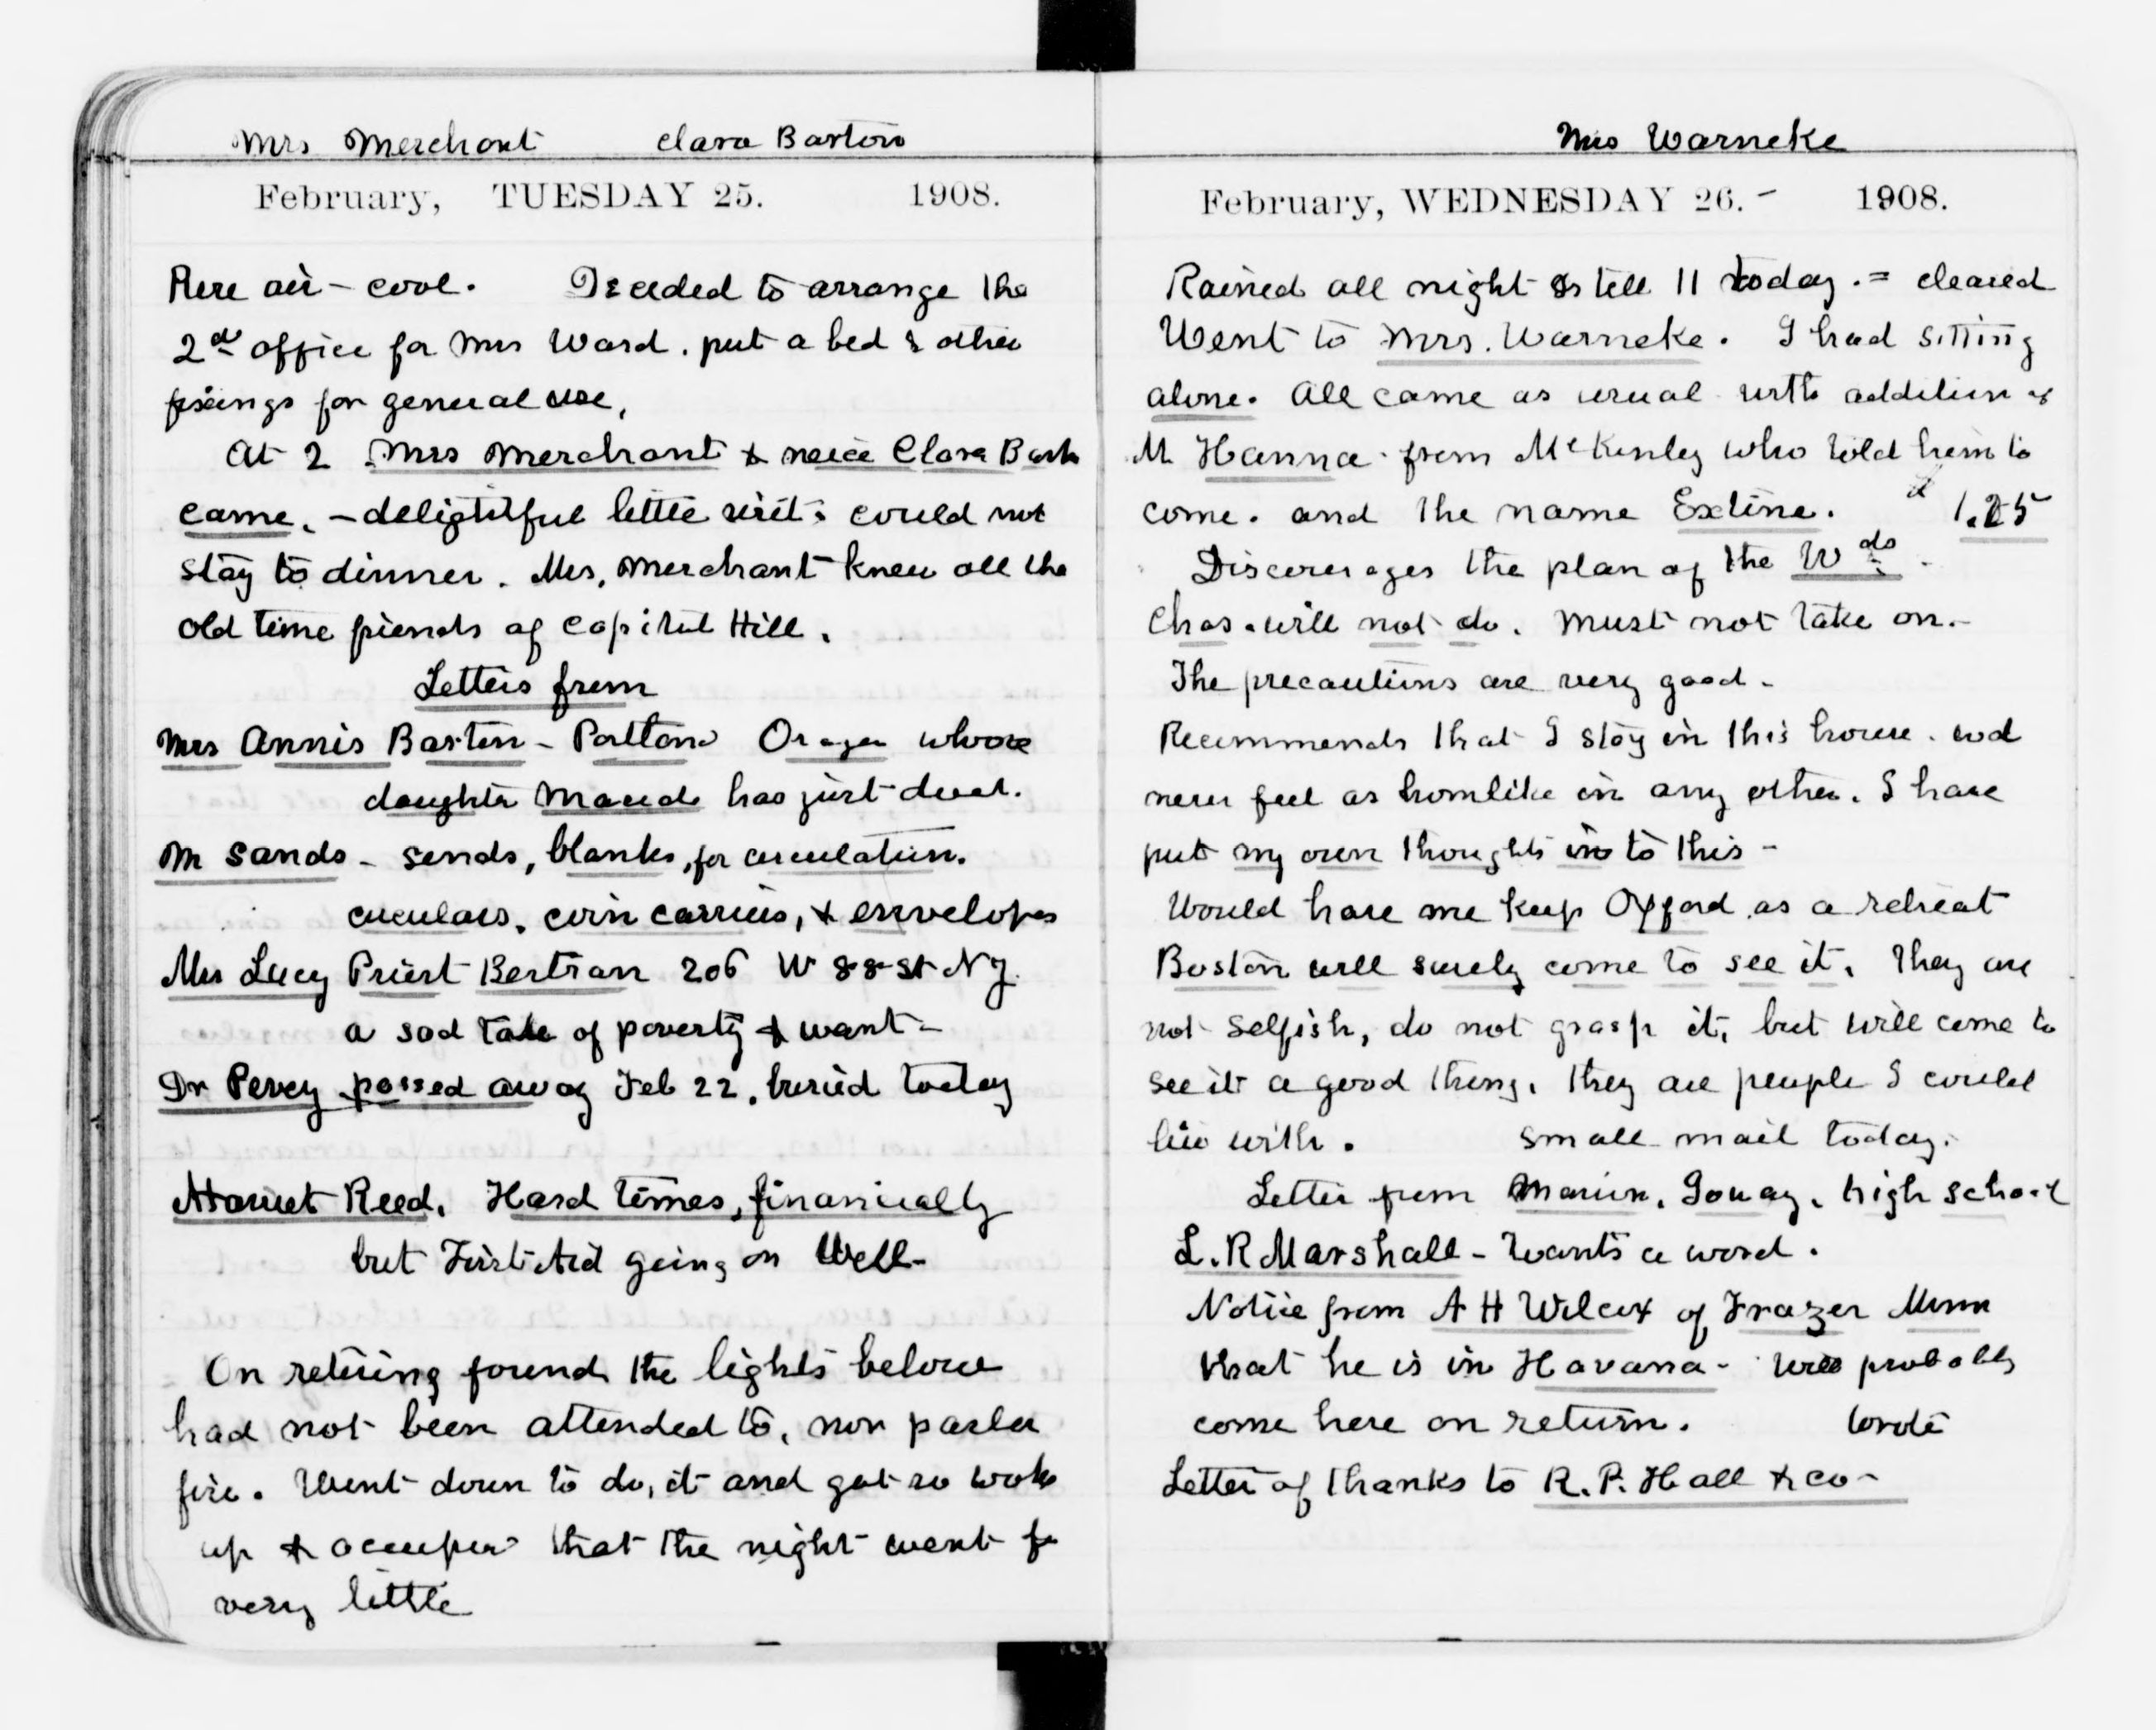 Mrs Merchant Clara Barton
February, TUESDAY 25. 1908.
Here air – cool. Decided to arrange the
2d office for Mrs Ward. put a bed & other
fixings for general use,
At 2 Mrs Merchant & neice Clara Bart
came, – delightful little visit. could not
stay to dinner. Mrs. Merchant knew all the
old time friends of Capitol Hill.
Letters from
Mrs Annis Barton – Portland Oregon whose
daughter Maud has just died.
Mr Sands – sends, blanks, for circulation.
circulars, coin carriers, & envelopes
Mrs Lucy Priest Bertran 206 W 88 St NY.
a sad tale of poverty & want –
Dr Pervey passed away Feb 22, buried today
Harriet Reed. Hard times, financially
but First Aid going on Well –
On retiring found the lights below
had not been attended to, nor parlor
fire. Went down to do, it and got so woke
up & that the night went for
very little
Mrs Warneke
February, WEDNESDAY 26. – 1908.
Rained all night & till 11 today. = cleared
Went to Mrs. Warneke. I had sitting
alone. All came as usual with addition of
M Hanna from McKinley who told him to
come. and the name Extine. 1.25
Discourages the plan of the Wds.
Chas. will not do. Must not take on. –
The precautions are very good –
Recommends that I stay in this house. wd
never feel as homlike in any other. I have
put my own thoughts in to this –
Would have me keep Oxford as a retreat
Boston will surely come to see it. They are
not selfish, do not grasp it, but will come to
see it a good thing. They are people I could
live with. Small mail today.
Letter from Marion. high school
L. R Marshall – Wants a word.
Notice from A H Wilcox of Frazer Minn
that he is in Havana – Will probably
come here on return. Wrote
Letter of thanks to R. P. Hall & co –